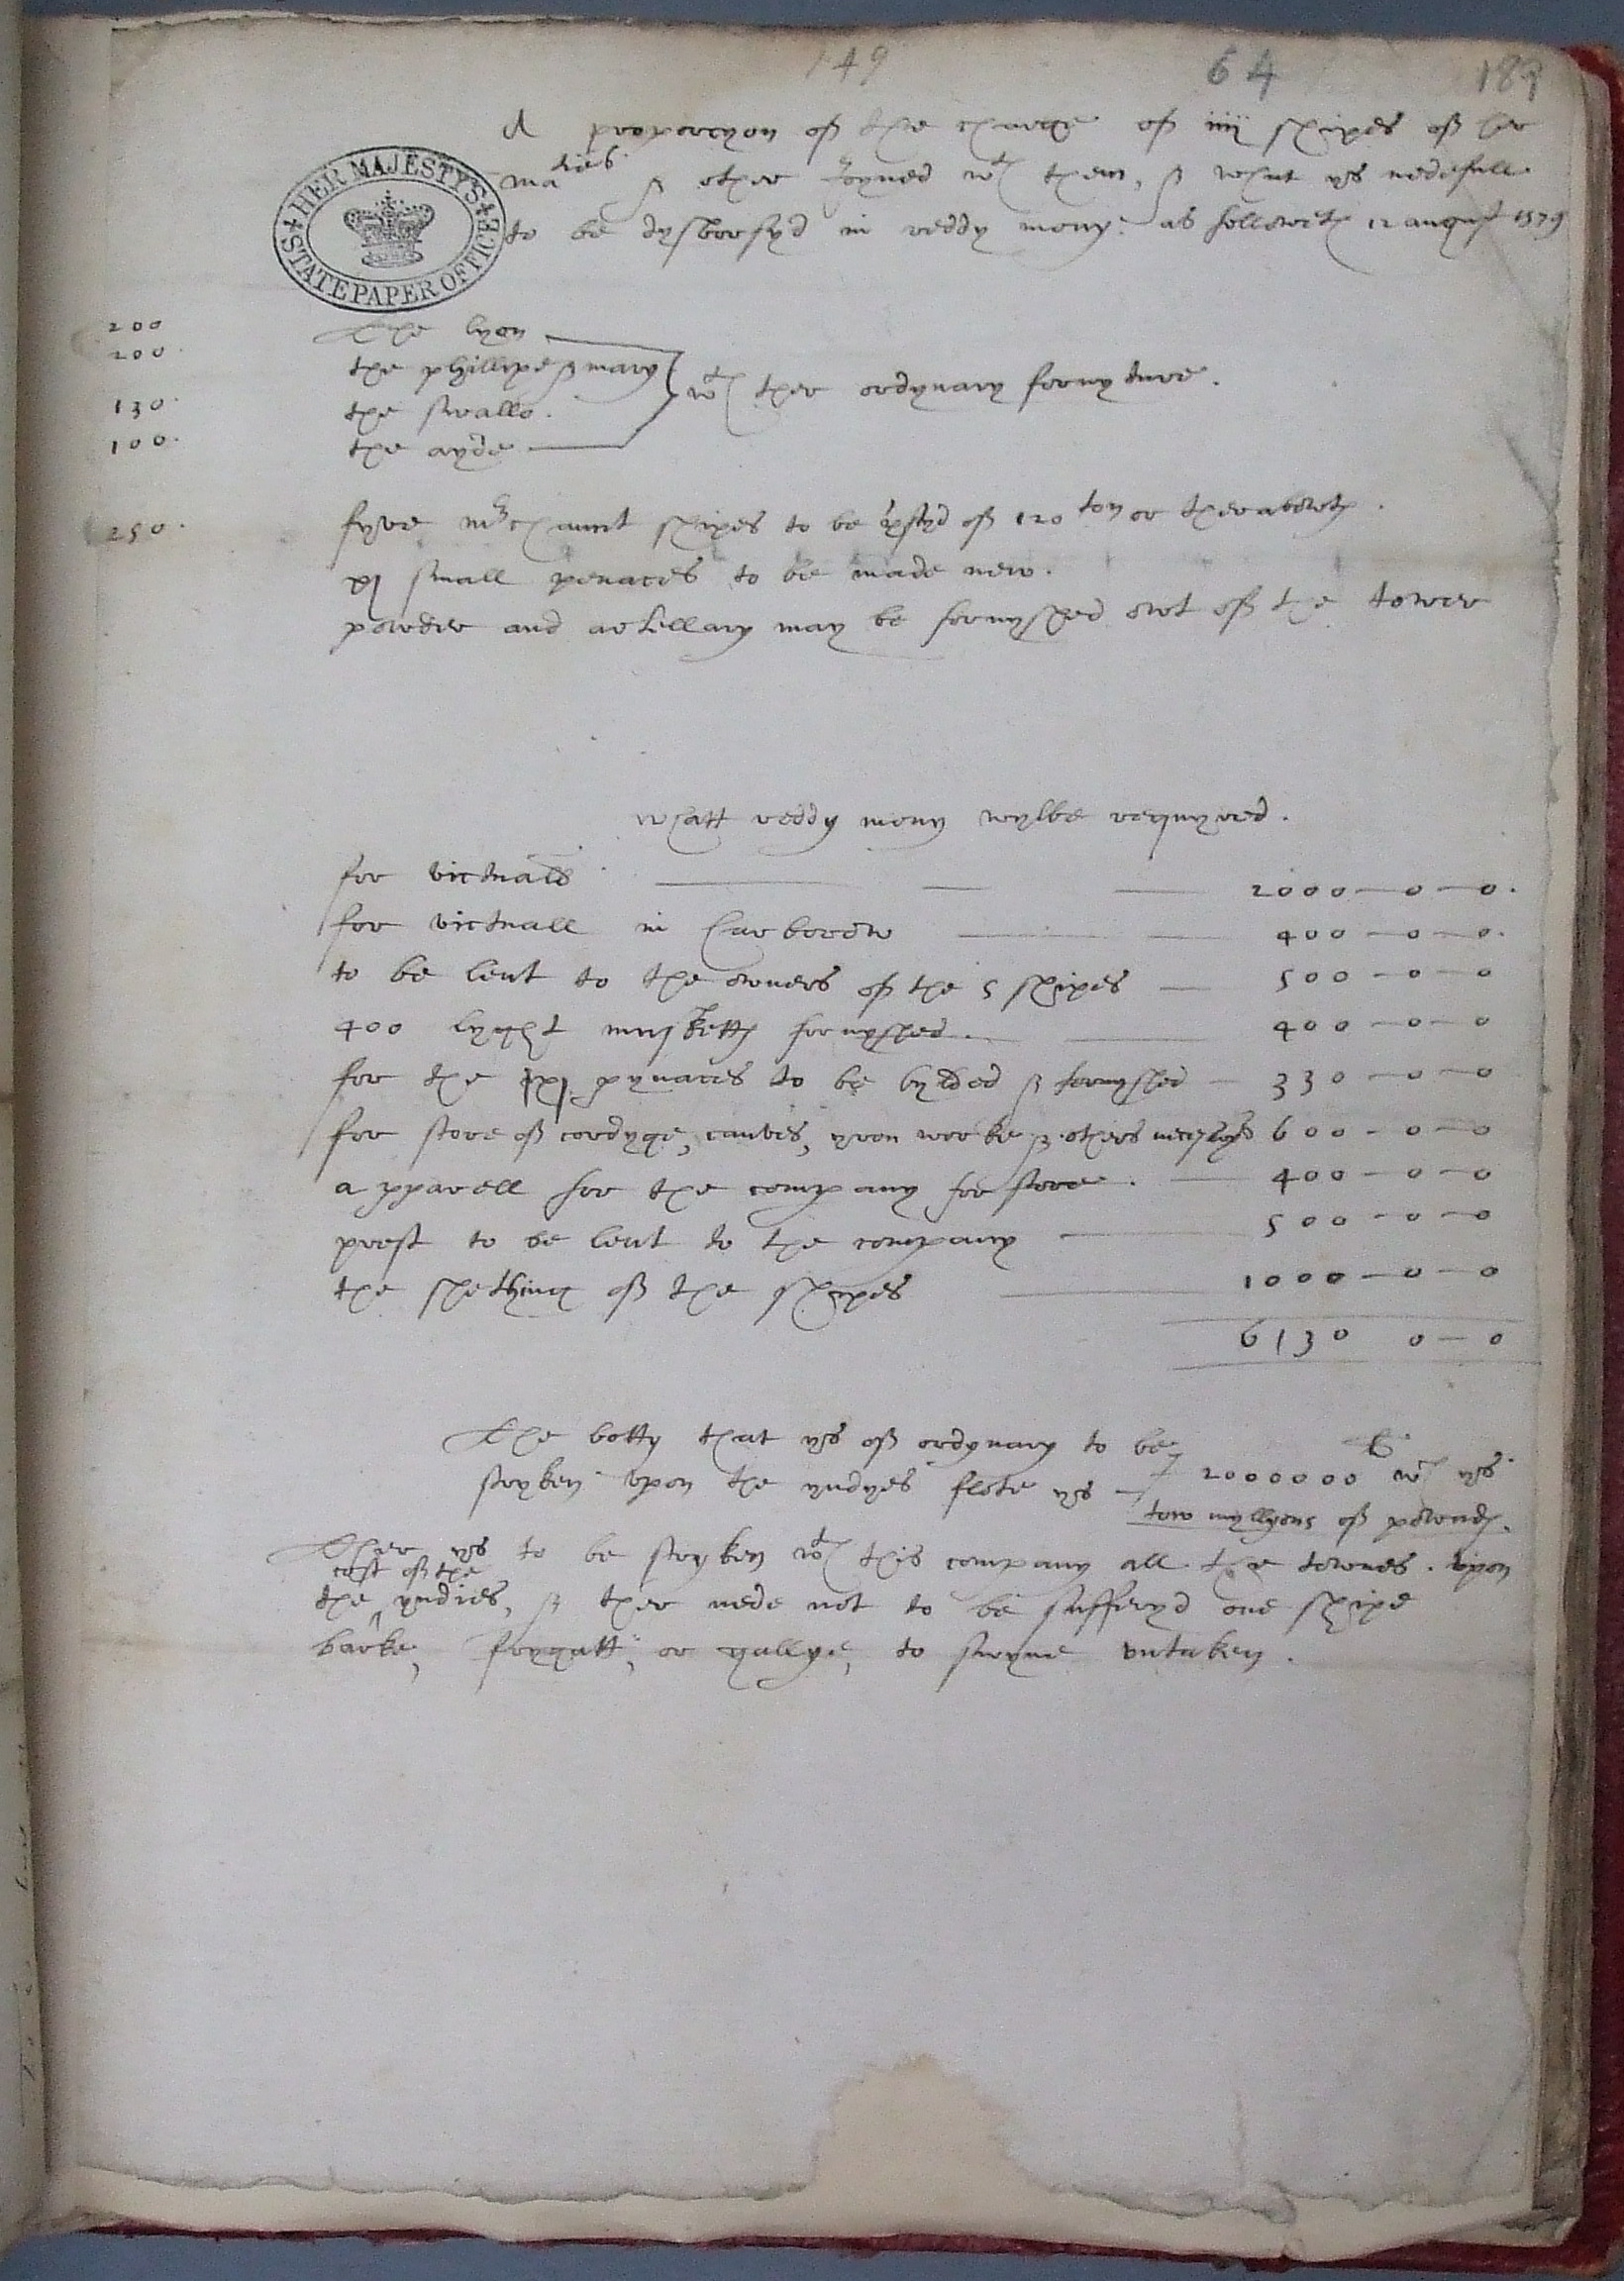 149 64 183
A proporcyon off the charge of iiij shipes off her
maties & other joyned wth them, & what ys nedefull
to be dysborsyd in reddy mony: as followeth 12 august 1579
HER MAJESTY'S STATE PAPER OFFICE
200 The lyon
200 the phillipe & mary
wth ther ordynary fornyture.
130 the swallo.
100 the ayde
250 fyve mrchaunt shipes to be off 120 ton or therabowts.
xj small penaces to be made new.
powder and artillary may be fornyshed owt off the tower
whatt reddy mony wylbe requyred.
for victuals 2000—0—0.
for victuall in harborow 400—0—0.
to be lent to the owners of the 5 shipes 500—0—0
400 lyght musketts fornyshed. 400—0—0
for the xj pynaces to be bylded & fornyshed 330—0—0
for store off cordyge, canves, yron worke & others 600—0—0
apparell for the company for store. 400—0—0
prest to be lent to the company 500—0—0
the shething off the shipes 1000—0—0
6130 0—0
The botty that ys off ordynary to be
li
stryken upon the yndyes flote ys 2000000 wch ys
tow myllyons off pownds.
Ther ys to be stryken wth this company all the townes upon
cost off the
the yndies, & ther nede not to be sufferyd one shipe
barke, frygatt, or gallye, to swyme untaken.